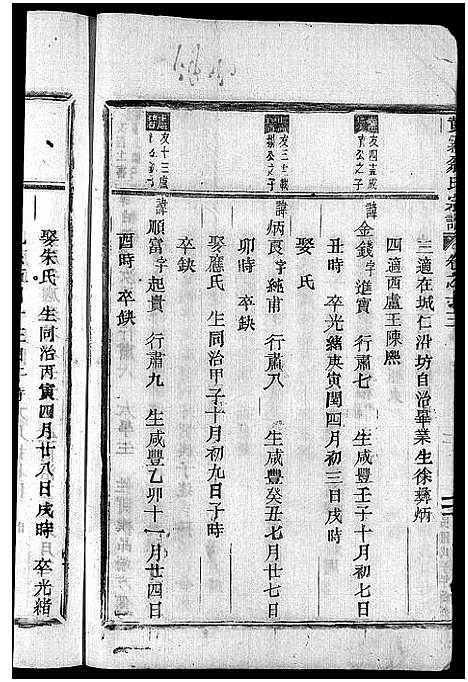 三適在城仁沿坊自治畢業生徐彝炳
四適西盧王陳熙
友四
公之子
諱金錢字進寶 行肅七 生咸豐壬子十月初七日
丑時 卒光緒庚寅閏四月初三日戌時
娶氏
友三十
公之子
諱炳良字純甫 行肅八 生咸豐癸丑七月廿七日
卯時 卒缺
娶應氏 生同治甲子十月初九日子時
卒缺
友十三
公之子
諱順富字起貴 行肅九 生咸豐乙卯十一月廿四日
酉時 卒缺
娶朱氏 生同治丙寅四月廿八日戌時 卒光緒